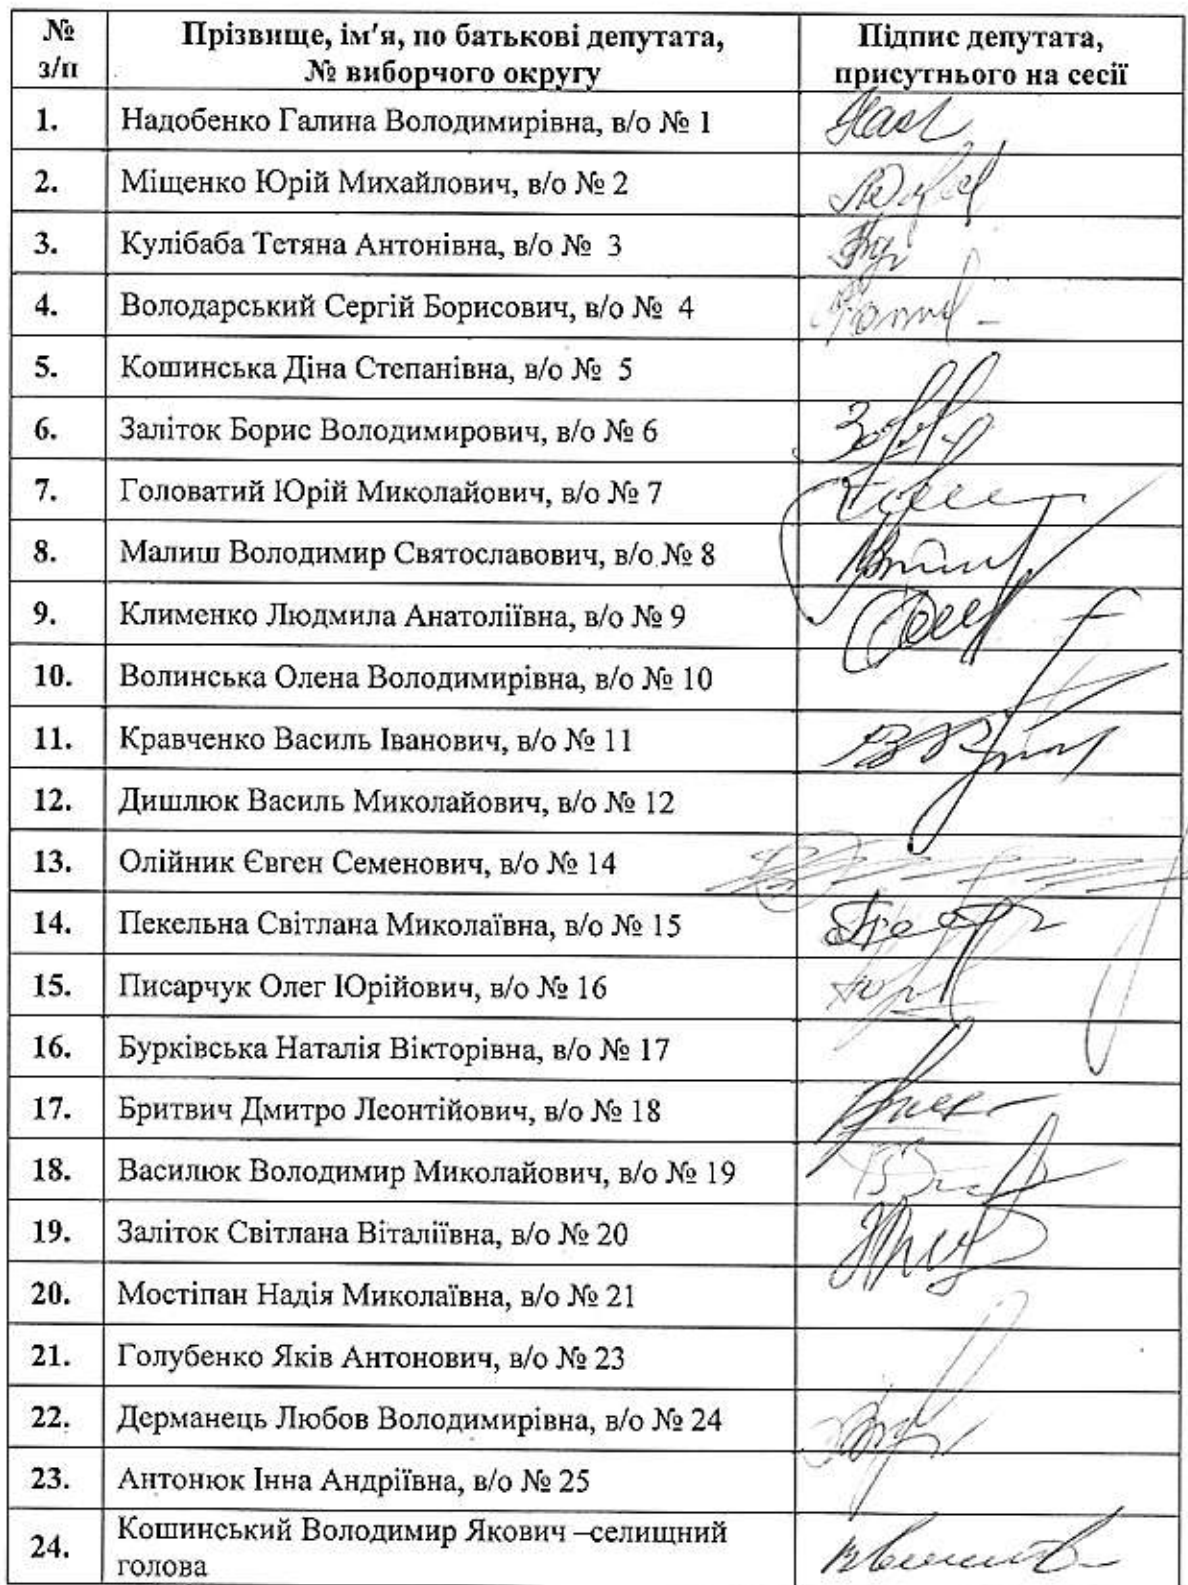 № з/п
Прізвище, ім'я, по батькові депутата,
№ виборчого округу
Підпис депутата,
присутнього на сесії
1. Надобенко Галина Володимирівна, в/о № 1
2. Міщенко Юрій Михайлович, в/о № 2
3. Кулібаба Тетяна Антонівна, в/о № 3
4. Володарський Сергій Борисович, в/о № 4
5. Кошинська Діна Степанівна, в/о № 5
6. Заліток Борис Володимирович, в/о № 6
7. Головатий Юрій Миколайович, в/о № 7
8. Малиш Володимир Святославович, в/о № 8
9. Клименко Людмила Анатоліївна, в/о № 9
10. Волинська Олена Володимирівна, в/о № 10
11. Кравченко Василь Іванович, в/о № 11
12. Дишлюк Василь Миколайович, в/о № 12
13. Олійник Євген Семенович, в/о № 14
14. Пекельна Світлана Миколаївна, в/о № 15
15. Писарчук Олег Юрійович, в/о № 16
16. Бурківська Наталія Вікторівна, в/о № 17
17. Бритвич Дмитро Леонтійович, в/о № 18
18. Василюк Володимир Миколайович, в/о № 19
19. Заліток Світлана Віталіївна, в/о № 20
20. Мостіпан Надія Миколаївна, в/о № 21
21. Голубенко Яків Антонович, в/о № 23
22. Дерманець Любов Володимирівна, в/о № 24
23. Антонюк Інна Андріївна, в/о № 25
24. Кошинський Володимир Якович –селищний
голова